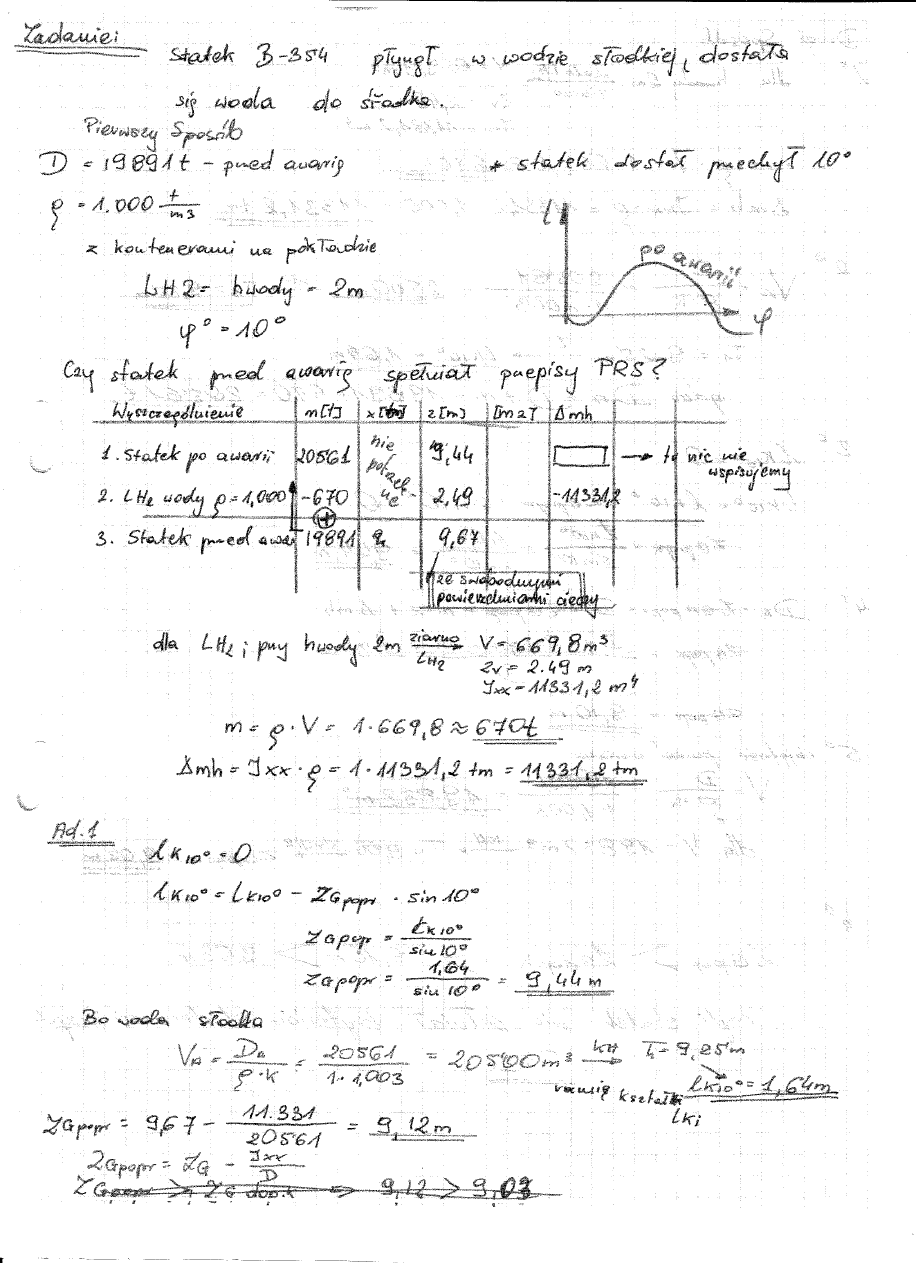 Zadanie:
Statek B-354 płynął w wodzie słodkiej, dostała
się woda do środka.
Pierwszy Sposób
D = 19891t - przed awarią
* statek dostał przechył 10°
ρ = 1.000 t/m3
z kontenerami na pokładzie
LH2 = hwody = 2m
φ° = 10°
l
po awarii
φ
Czy statek przed awarią spełniał przepisy PRS?
Wyszczególnienie m[t] x[m] z[m] [m2] Δmh
1. Statek po awarii 20561 nie potrzebne 9,44 → tu nic nie wspisujemy
2. LH2 wody ρ=1,000 -670 2,49 -11331,2
+
3. Statek przed awar 19891 9,67
ze swobodnymi
powierzchniami cieczy
dla LH2 i przy hwody 2m ziarno LH2 → V = 669,8m³
Zv = 2.49 m
Jxx = 11331,2 m⁴
m = ρ · V = 1 · 669,8 ≈ 670t
Δmh = Jxx · ρ = 1 · 11331,2 tm = 11331,2 tm
Ad.1
lK10° = 0
lK10° = LK10° - ZGpopr · sin 10°
ZGpopr = LK10° / sin 10°
ZGpopr = 1,64 / sin 10° = 9,44m
Bo woda słodka
VA = DA / ρ·k = 20561 / 1·1,003 = 20500m³ KH → T = 9,25m
kształt lKi lK10° = 1,64m
ZGpopr = 9,67 - 11.331 / 20561 = 9,12m
ZGpopr = ZG - Jxx / D
ZGpopr > ZG dop.k => 9,12 > 9,03